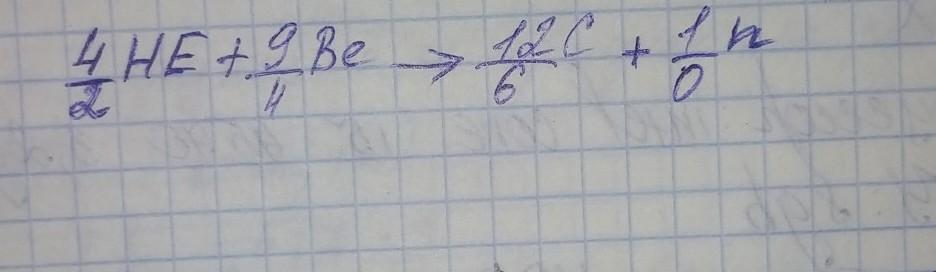 4/2 HE + 9/4 Be → 12/6 C + 1/0 n